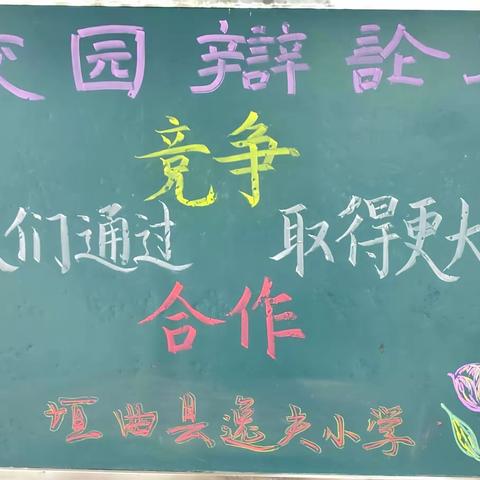 校园辩论
竞争
我们通过 取得更大
合作
垣曲县逸夫小学